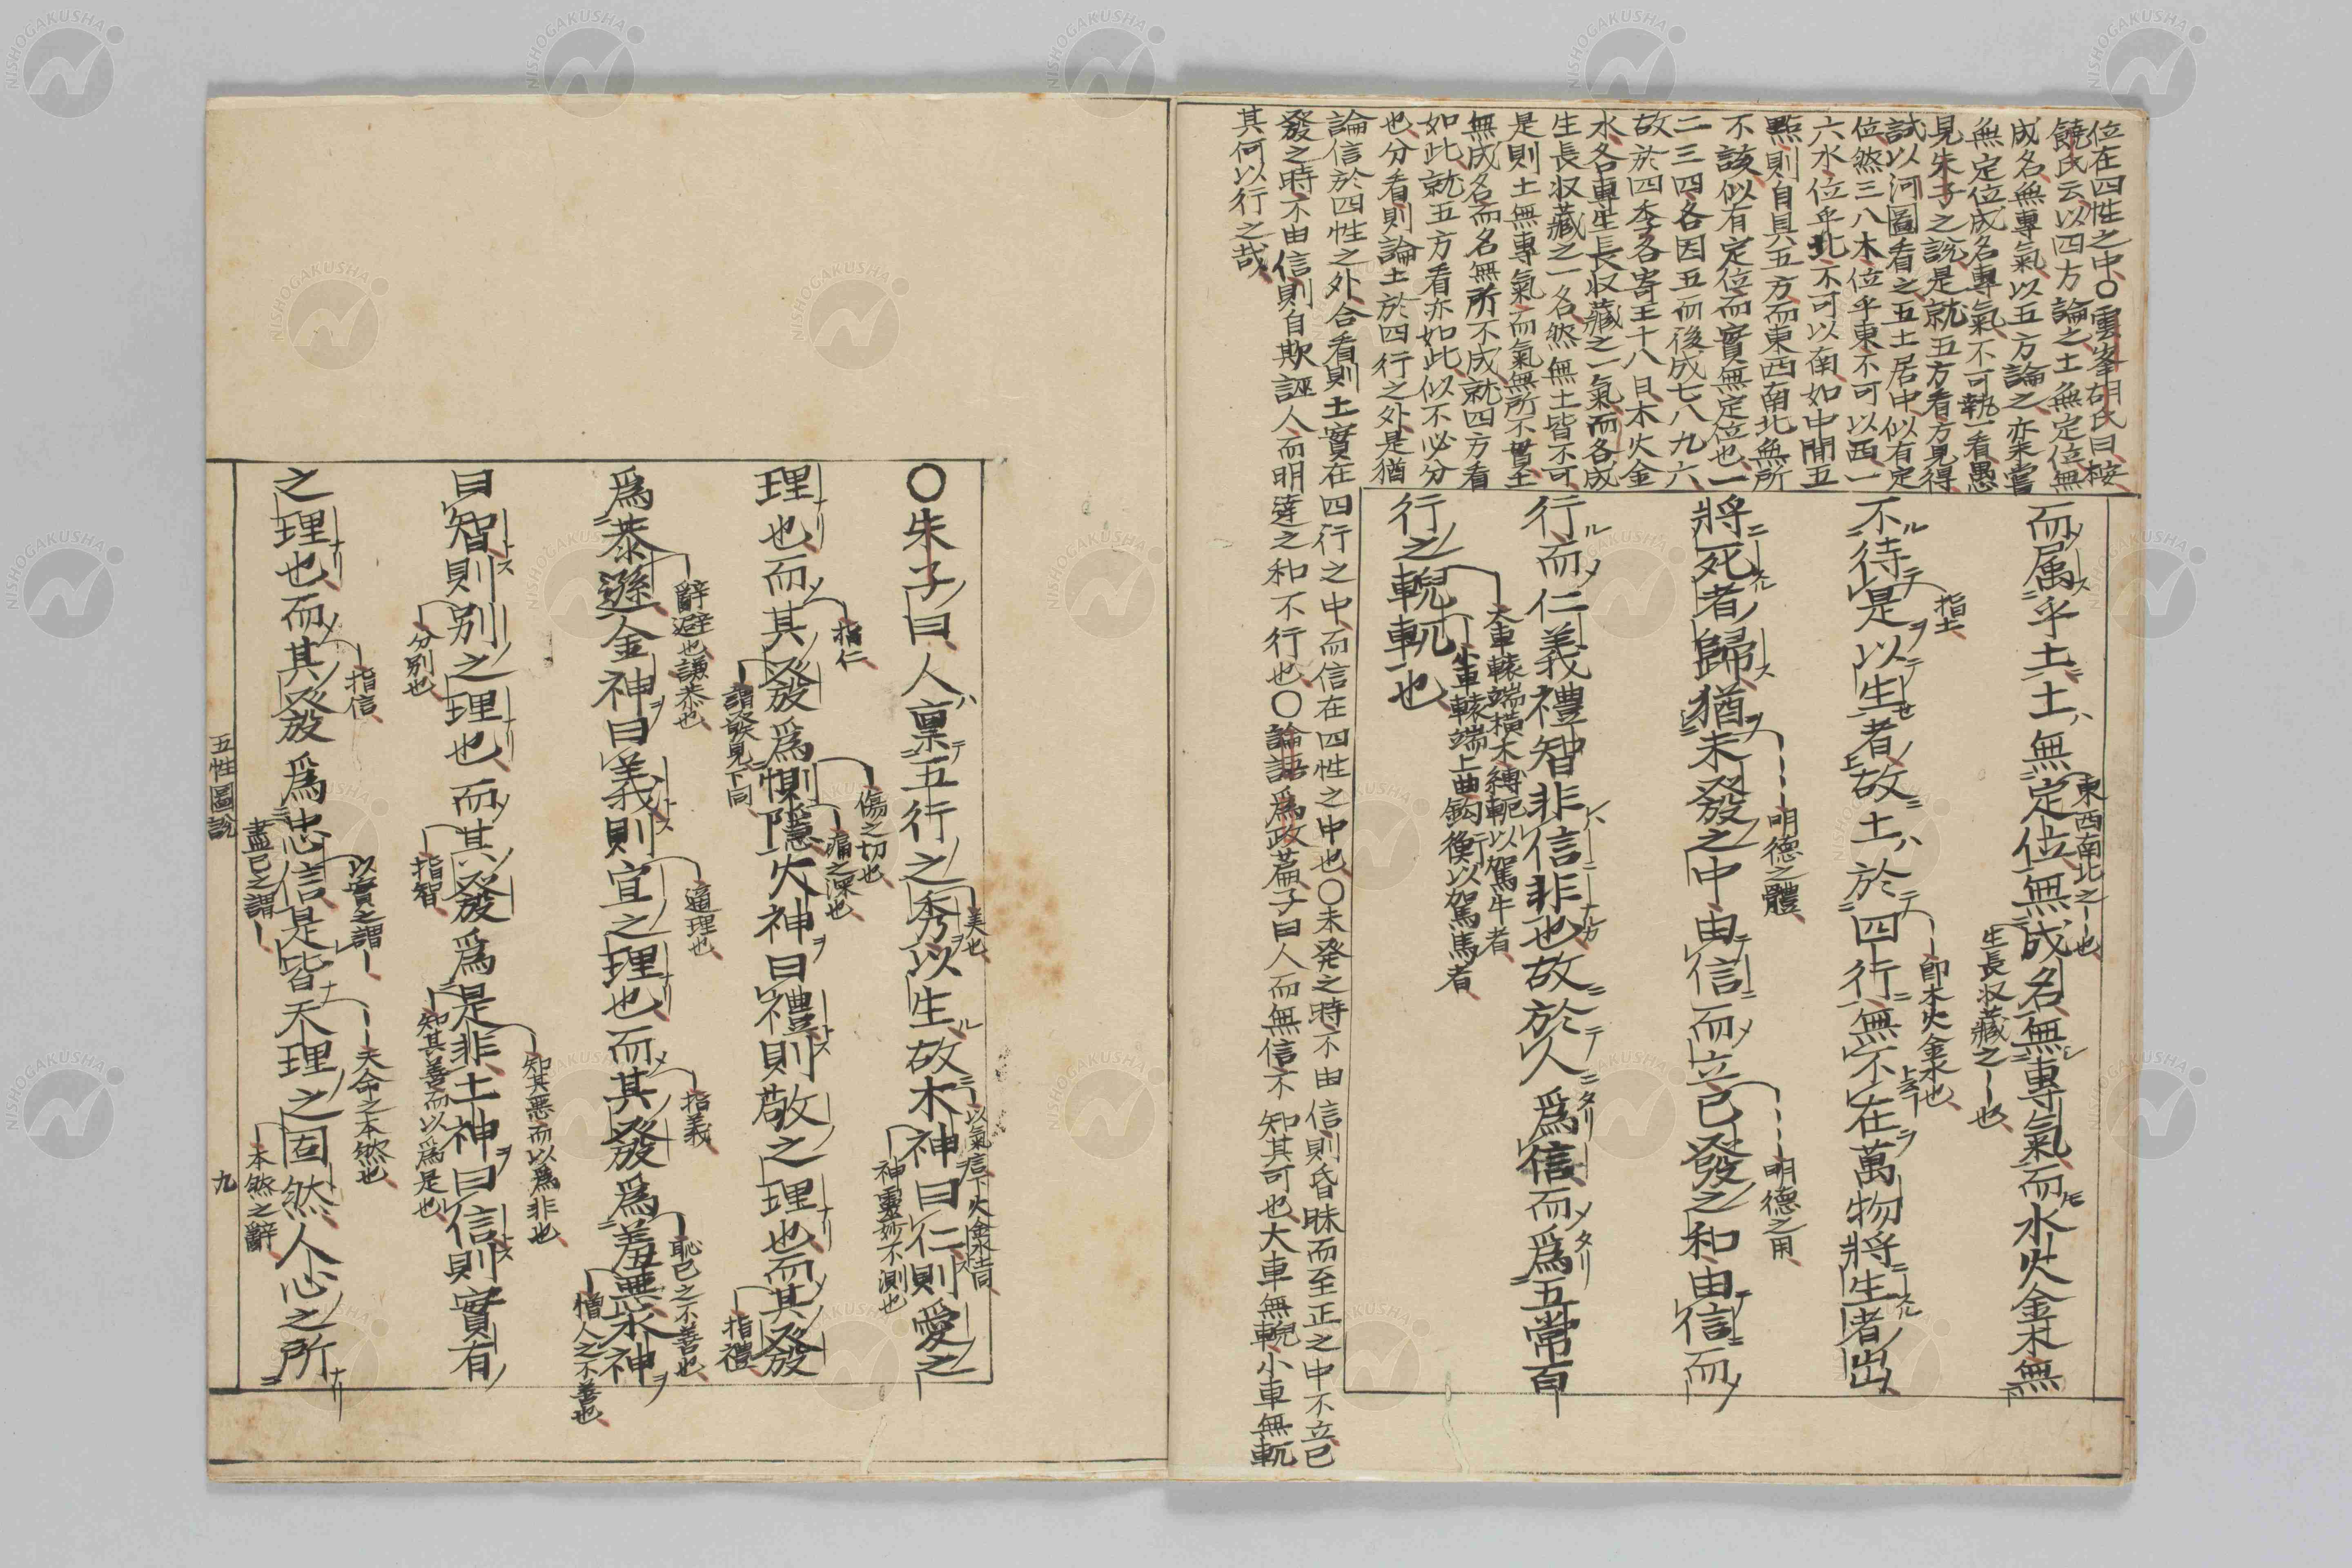 位在四性之中〇雲峯胡氏曰桉
饒氏云以四方論之土無定位無
成名無專氣以五方論之亦未嘗
無定位成名專氣不可執一看愚
見朱子之說是就五方看方見得
試以河圖看之五土居中似有定
位然三八木位乎東不可以西一
六水位乎北不可以南如中間五
點則自具五方而東西南北無所
不該似有定位而實無定位也一
二三四各因五而後成七八九六
故於四季各寄王十八日木火金
水各專生長収藏之一氣而各成
生長収藏之一名然無土皆不可
是則土無專氣而氣無所不貫土
無成名而名無所不成就四方看
如此就五方看亦如此似不必分
也分看則論土於四行之外是猶
論信於四性之外合看則土實在四行之中而信在四性之中也〇未発之時不由信則昏昧而至正之中不立已
發之時不由信則自欺誣人而明達之和不行也〇論語爲政篇子曰人而無信不知其可也大車無輗小車無軏
其何以行之哉
而属乎土土無定位無成名無專氣而水火金木無
東西南北之ー也
生長収藏之ー也
不待是以生者故土於四行無不在萬物將生者出
指土
ー即木火金水也
將死者歸猶未發之中由信而立已發之和由信而
ーーー明德之體
ーーー明德之用
行而仁義禮智非信非也故於人爲信而爲五常百
行之輗軏也
大車轅端橫木縛軛以駕牛者
小車轅端上曲鈎衡以駕馬者
〇朱子曰人稟五行之秀以生故木神曰仁則愛之
美也
以氣言下火金水土同
神靈妙不測也
理也而其發爲惻隱火神曰禮則敬之理也而其發
指仁
謂發見下同
傷之切也
痛之深也
指禮
爲恭遜金神曰義則宜之理也而其發爲羞惡水神
辭避也謙恭也
適理也
指義
恥己之不善也
憎人之不善也
曰智則別之理也而其發爲是非土神曰信則實有
分別也
指智
知其善而以爲是也
知其惡而以爲非也
之理也而其發爲忠信是皆天理之固然人心之所
指信
盡己之謂ー
以實之謂ー
ーー天命之本然也
本然之辭
五性圖說
九
NISHOGAKUSHA